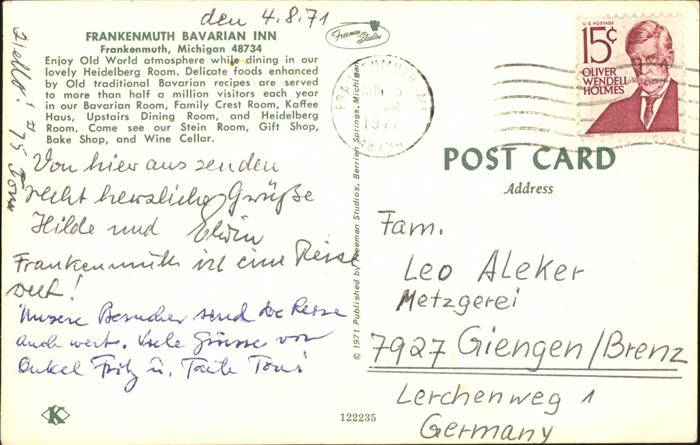 den 4.8.71
FRANKENMUTH BAVARIAN INN
Frankenmuth, Michigan 48734
Enjoy Old World atmosphere while dining in our
lovely Heidelberg Room. Delicate foods enhanced
by Old traditional Bavarian recipes are served
to more than half a million visitors each year
in our Bavarian Room, Family Crest Room, Kaffee
Haus, Upstairs Dining Room, and Heidelberg
Room. Come see our Stein Room, Gift Shop,
Bake Shop, and Wine Cellar.
Hello!
Von hier aus senden
recht herzliche Grüße
Hilde und Elwin
Frankenmuth ist eine Reise
wert!
Unsere Besucher sind die Reise
auch wert. Viele Grüsse von
Onkel Fritz u. Tante Toni
K
122235
© 1971 Published by Freeman Studios, Berrien Springs, Michigan
Freeman
Studios
FRANKENMUTH, MI
AUG 5
AM
1971
48734
U.S. POSTAGE
15¢
OLIVER
WENDELL
HOLMES
POST CARD
Address
Fam.
Leo Aleker
Metzgerei
7927 Giengen/Brenz
Lerchenweg 1
Germany